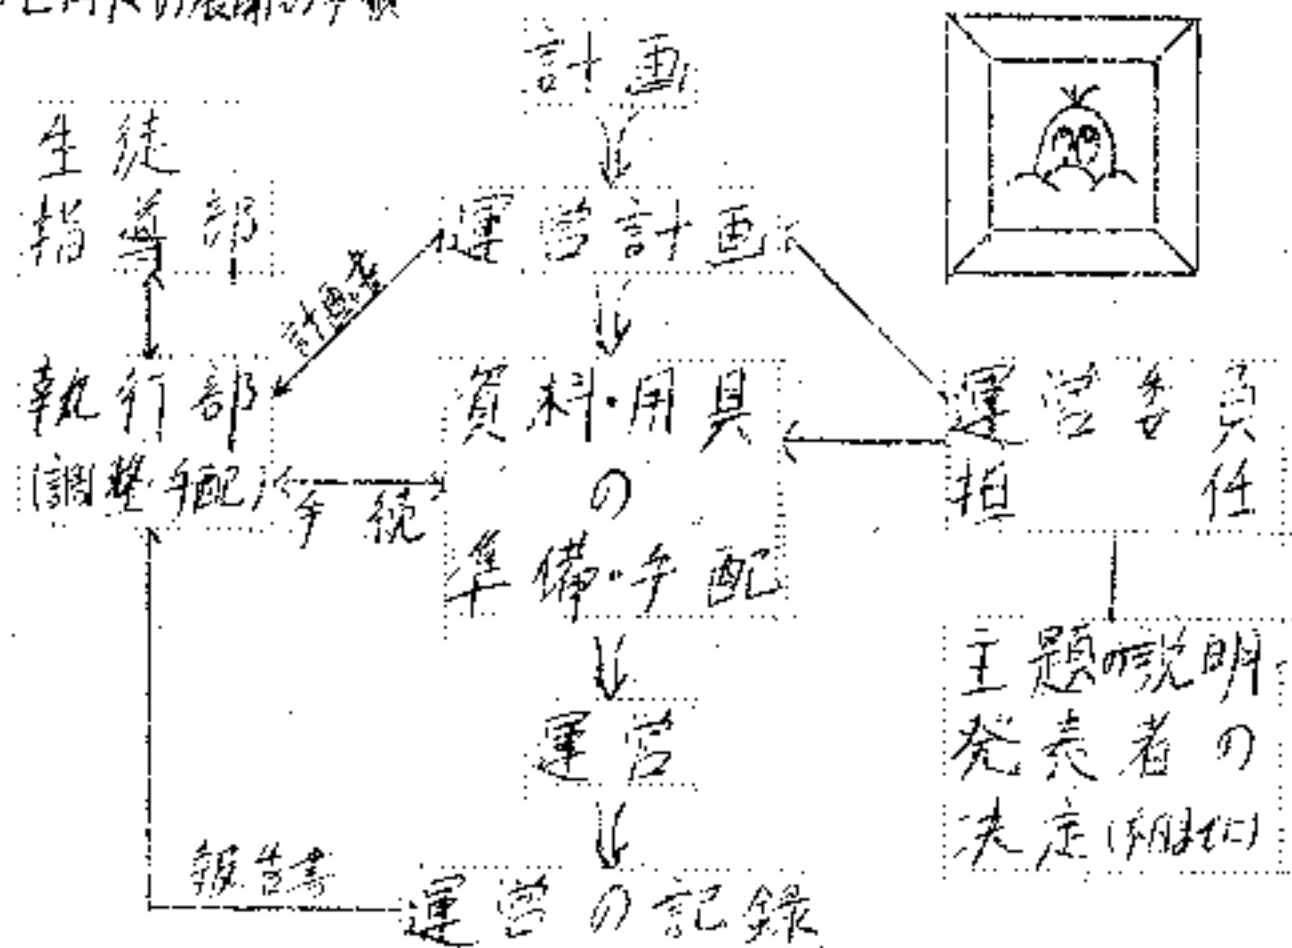 計画
生徒
指導部
運営計画
計画書
執行部
(調整・手配)
手続
資料・用具
の
準備・手配
運営委員
担任
主題の説明
発表者の
決定
運営
報告書
運営の記録